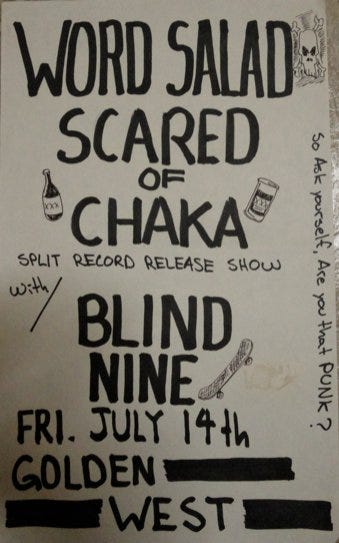 WORD SALAD
SCARED
OF
CHAKA
XXX
XXX
SPLIT RECORD RELEASE SHOW
with/
BLIND
NINE
FRI. JULY 14th
GOLDEN
WEST
So Ask yourself, Are you that PUNK?